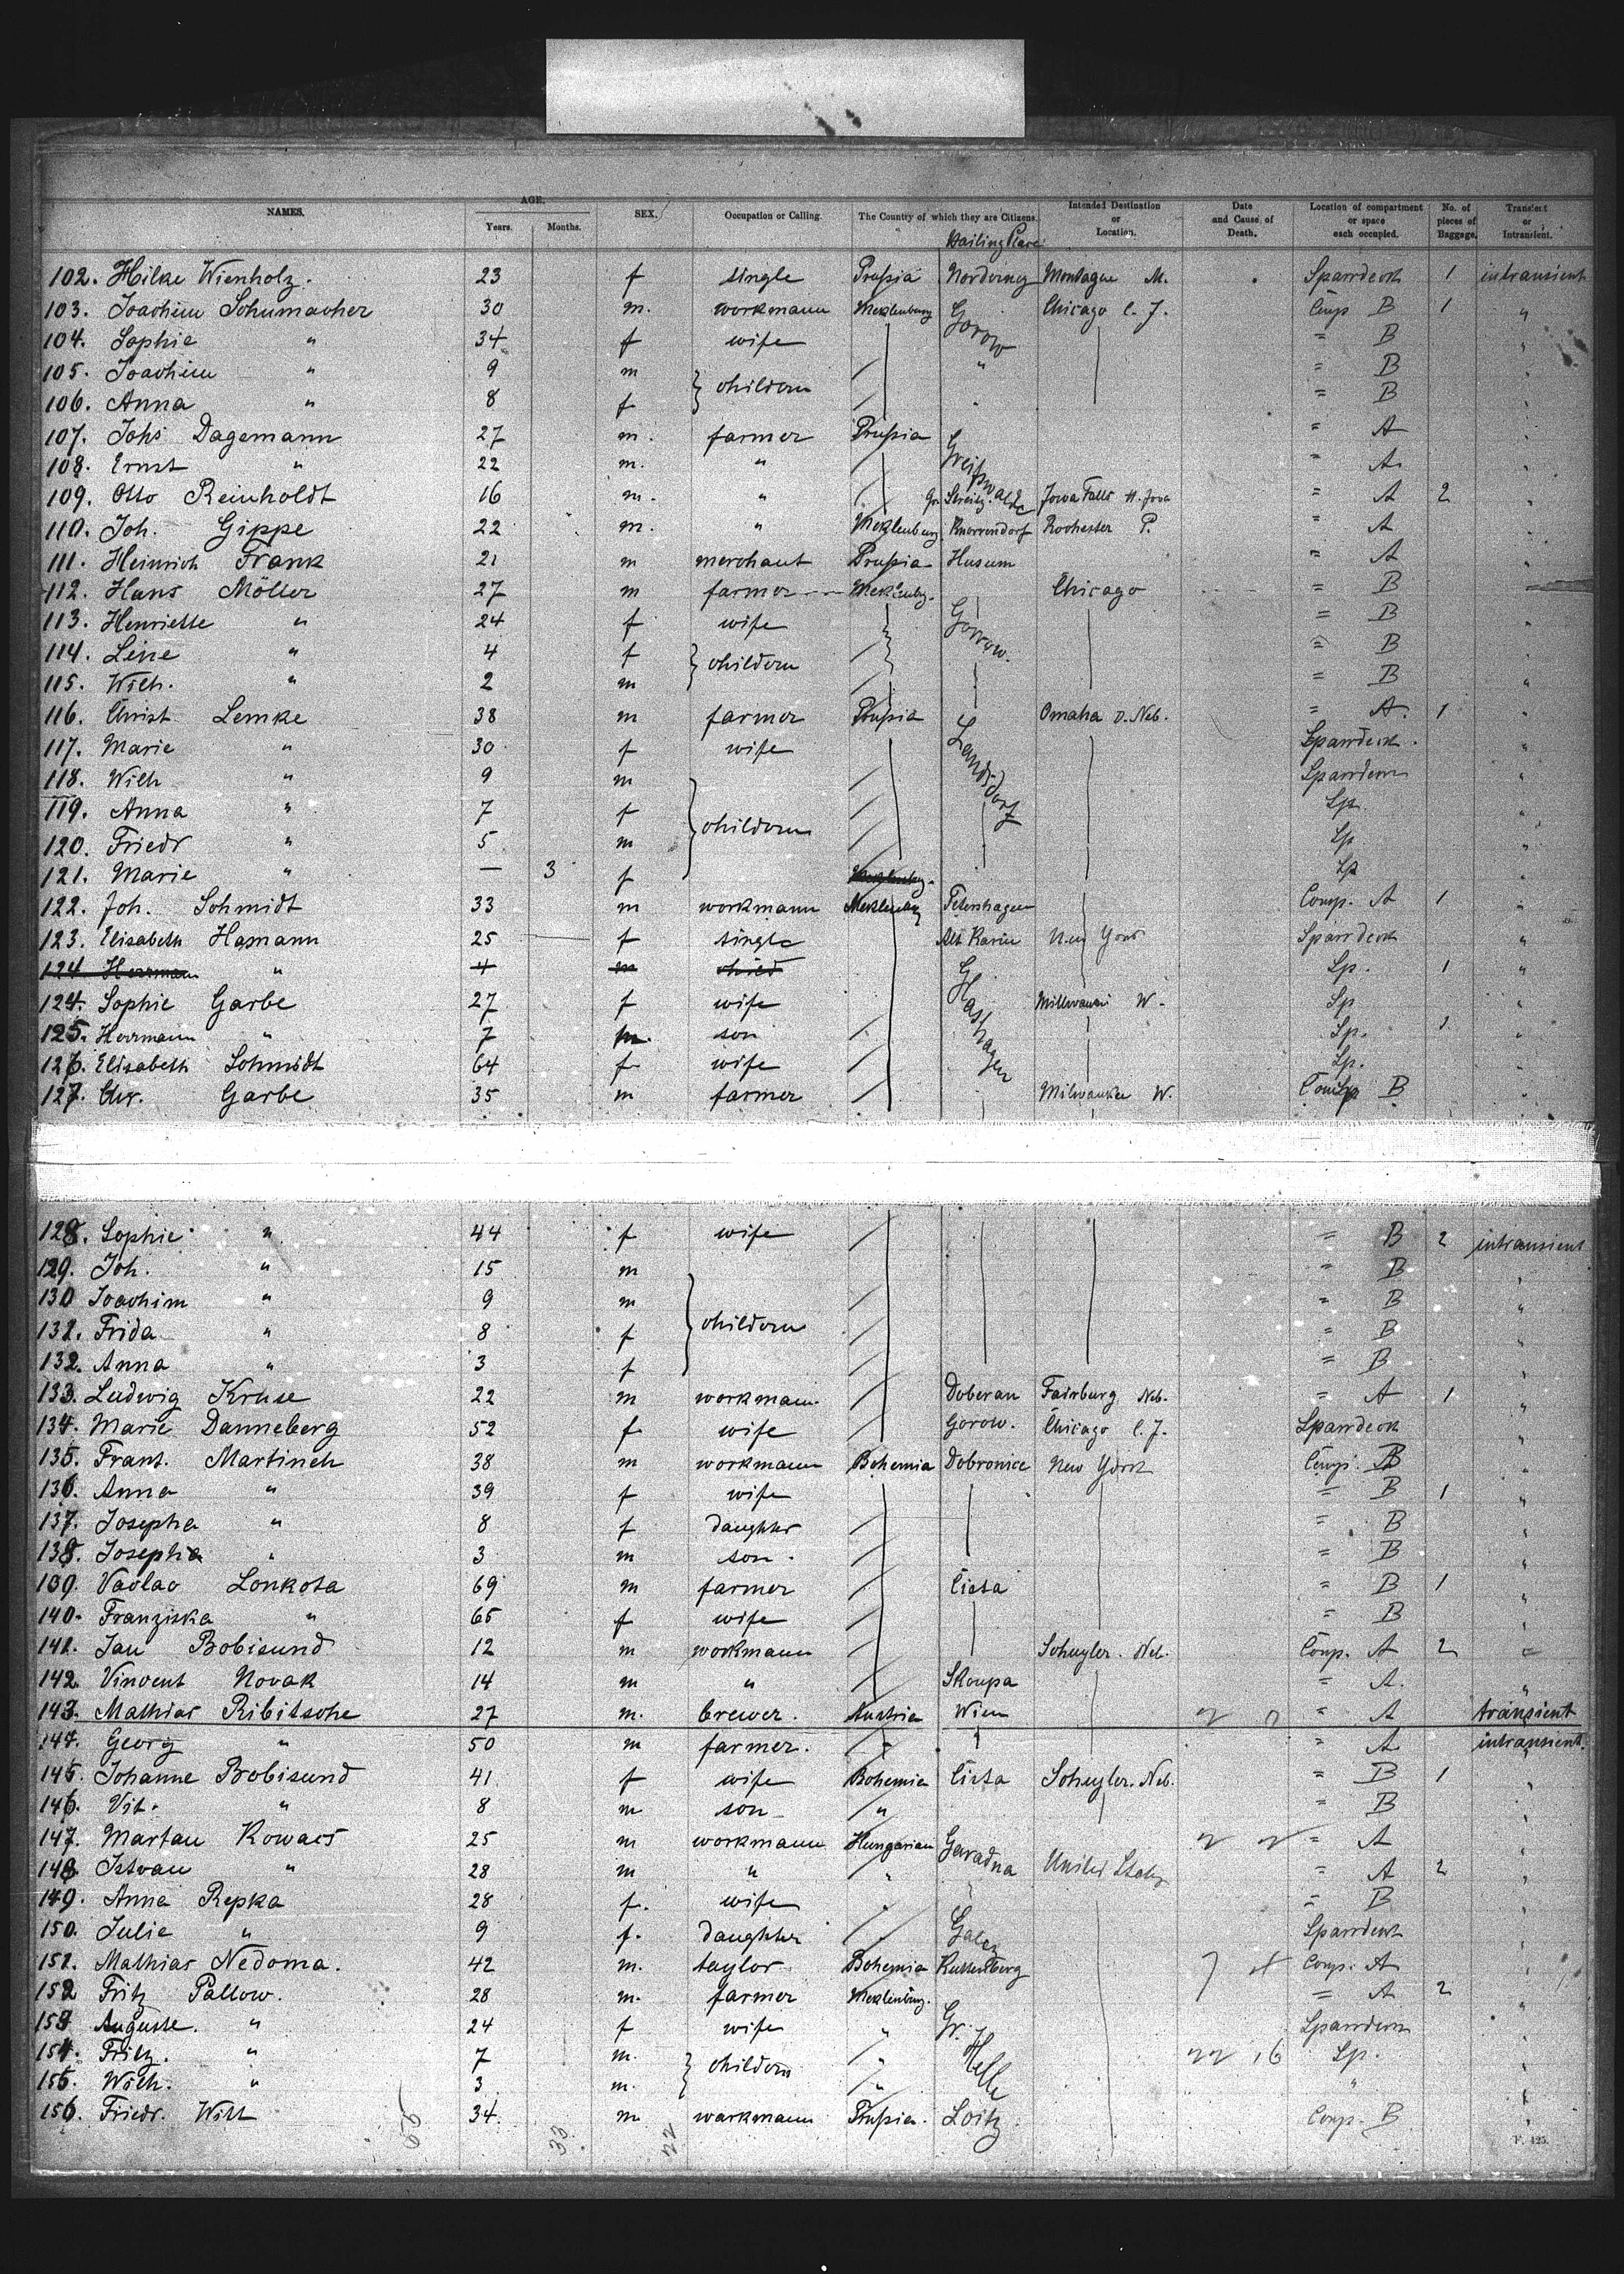 NAMES. AGE. Years. Months. SEX. Occupation or Calling. The Country of which they are Citizens. Intended Destination or Location. Date and Cause of Death. Location of compartment or space each occupied. No. of pieces of Baggage. Transient or Intransient.
Hailing Place
102. Hilke Wienholz. 23 f single Prussia Norderney Montague M. Sparrdeck 1 intransient
103. Joachim Schumacher 30 m. workmann Meklenburg Gorow Chicago C. J. Comp B 1 "
104. Sophie " 34 f wife = B "
105. Joachim " 9 m } childern " = B "
106. Anna " 8 f = B "
107. Johs Dagemann 27 m. farmer Prussia Greifswalde = A "
108. Ernst " 22 m. " = A "
109. Otto Reinholdt 16 m. " Gr. Streitz Jowa Falls = A 2 "
110. Joh. Gippe 22 m. " Meklenburg Knorrendorf Rochester P. = A "
111. Heinrich Frank 21 m merchant Prussia Husum = A "
112. Hans Möller 27 m farmer Meklenbg. Gorrow. Chicago = B "
113. Henriette " 24 f wife = B "
114. Line " 4 f } childern = B "
115. Wilh. " 2 m = B "
116. Christ Lemke 38 m farmer Prussia Landsdorf Omaha Neb. = A. 1 "
117. Marie " 30 f wife Sparrdeck. "
118. Wilh " 9 m Sparrdeck "
119. Anna " 7 f } childern Sp. "
120. Friedr " 5 m Sp. "
121. Marie " — 3 f Sp "
122. Joh. Schmidt 33 m workmann Meklenburg Petershagen Comp. A 1 "
123. Elisabeth Hamann 25 f single Alt Karin New York Sparrdeck "
124 Herrman " 4 m child Sp. 1 "
124. Sophie Garbe 27 f wife Millwauki W. Sp "
125. Herrmann " 7 m. son Sp. 1 "
126. Elisabeth Schmidt 64 f wife Sp. "
127. Chr. Garbe 35 m farmer Milwaukee W. Comp B "
128. Sophie " 44 f wife = B 2 intransient
129. Joh. " 15 m = B "
130 Joachim " 9 m } childern = B "
131. Frida " 8 f = B "
132. Anna " 3 f = B "
133. Ludwig Kruse 22 m workmann Doberan Fairburg Neb. = A 1 "
134. Marie Danneberg 52 f wife Gorow. Chicago C. J. Sparrdeck "
135. Frant. Martinek 38 m workmann Bohemia Dobronice New York Comp. B "
136. Anna " 39 f wife = B 1 "
137. Josepha " 8 f daughter = B "
138. Joseph " 3 m son = B "
139. Vaclav Lonkota 69 m farmer = B 1 "
140. Franziska " 65 f wife = B "
141. Jan Bobisund 12 m workmann Schuyler. Neb. Comp. A 2 "
142. Vincent Novak 14 m " Skoupa = A. "
143. Mathias Ribitsche 27 m. brewer. Austria Wien = A transient
144. Georg " 50 m farmer. " = A intransient
145. Johanne Bobisund 41 f wife Bohemia Schuyler. Neb. = B 1 "
146. Vit. " 8 m son " = B "
147. Martan Kowacs 25 m workmann Hungarian Garadna = A "
148. Istvan " 28 m " " United States = A 2 "
149. Anna Repka 28 f. wife " = B "
150. Julie " 9 f. daughter Sparrdeck "
151. Mathias Nedoma. 42 m. taylor Bohemia Kuttenberg Comp. A "
152 Fritz Pallow. 28 m. farmer Meklenburg. Gr. Helle = A 2 "
153 Auguste. " 24 f wife " Sparrdeck "
154. Fritz. " 7 m. } childern " 22 16 Sp. "
155. Wilh. " 3 m. " " "
156. Friedr. Witt 34. m warkmann Prussia. Loitz. Comp. B "
65 33 22
F. 425.